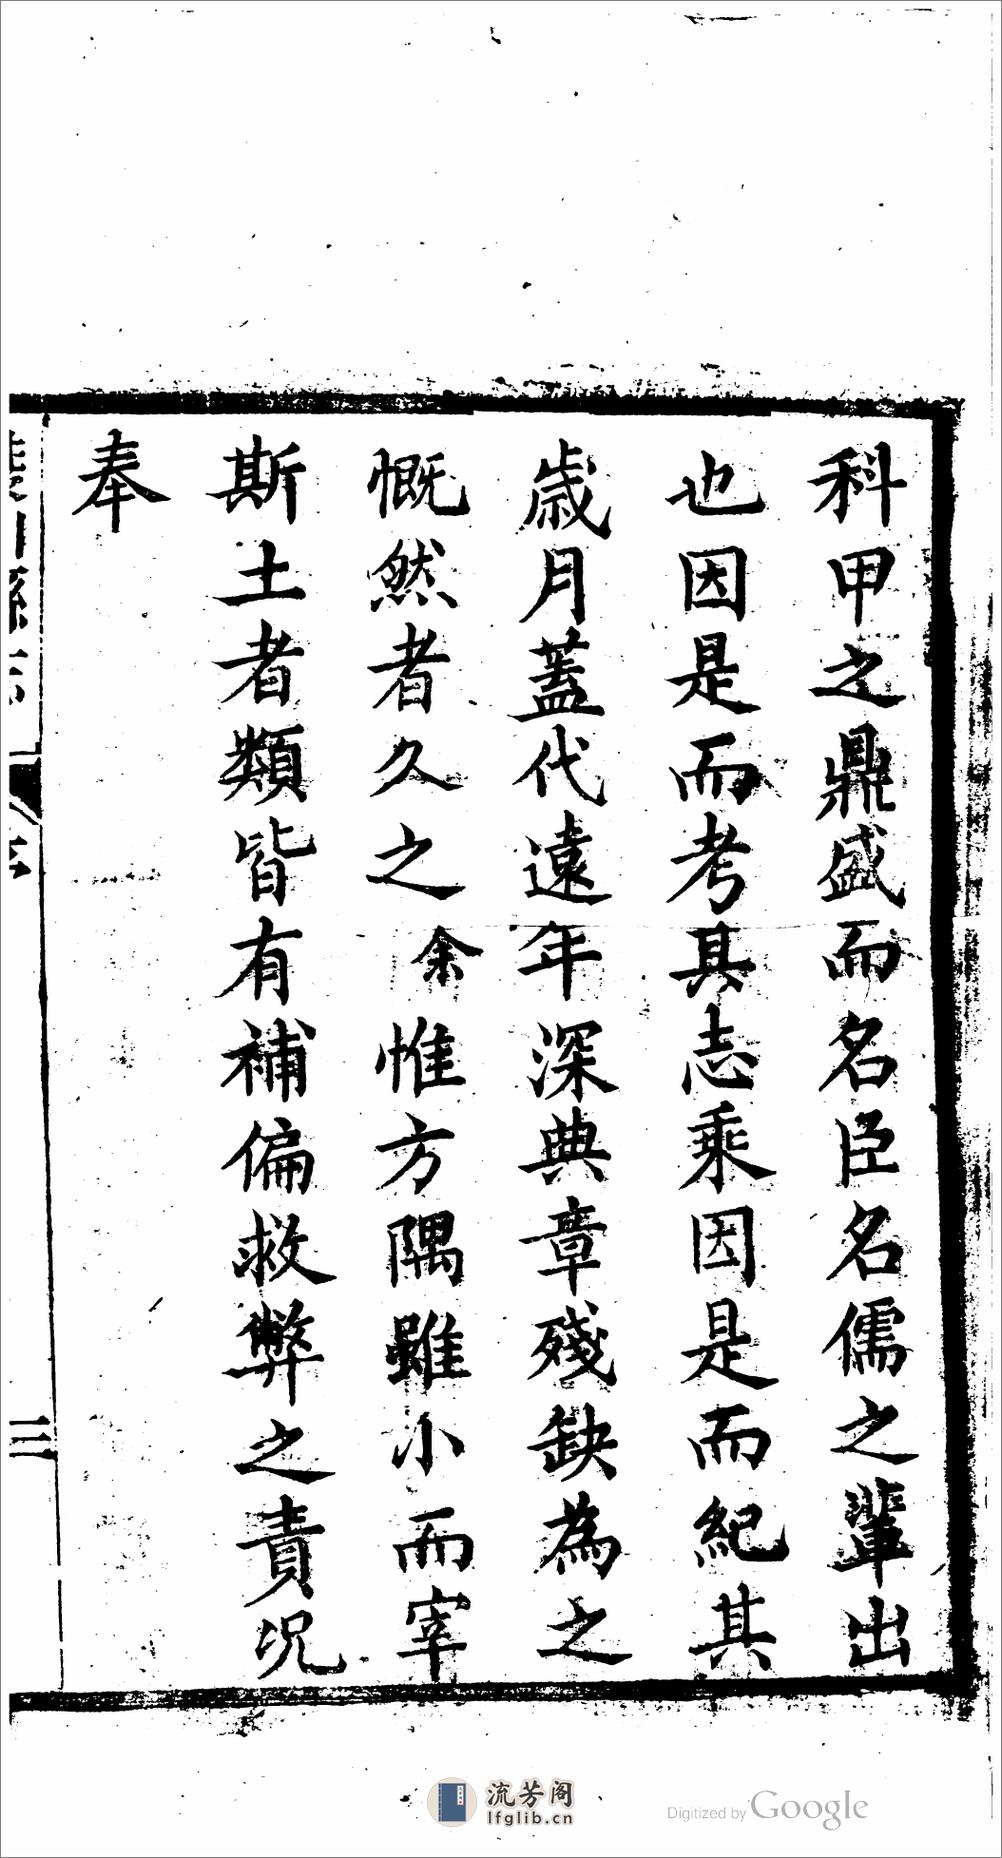 科甲之鼎盛而名臣名儒之輩出
也因是而考其志乘因是而紀其
歲月蓋代遠年深典章殘缺為之
慨然者久之余惟方隅雖小而宰
斯土者類皆有補偏救弊之責況
奉
陵川縣志
序
三
流芳阁
lfglib.cn
Digitized by Google